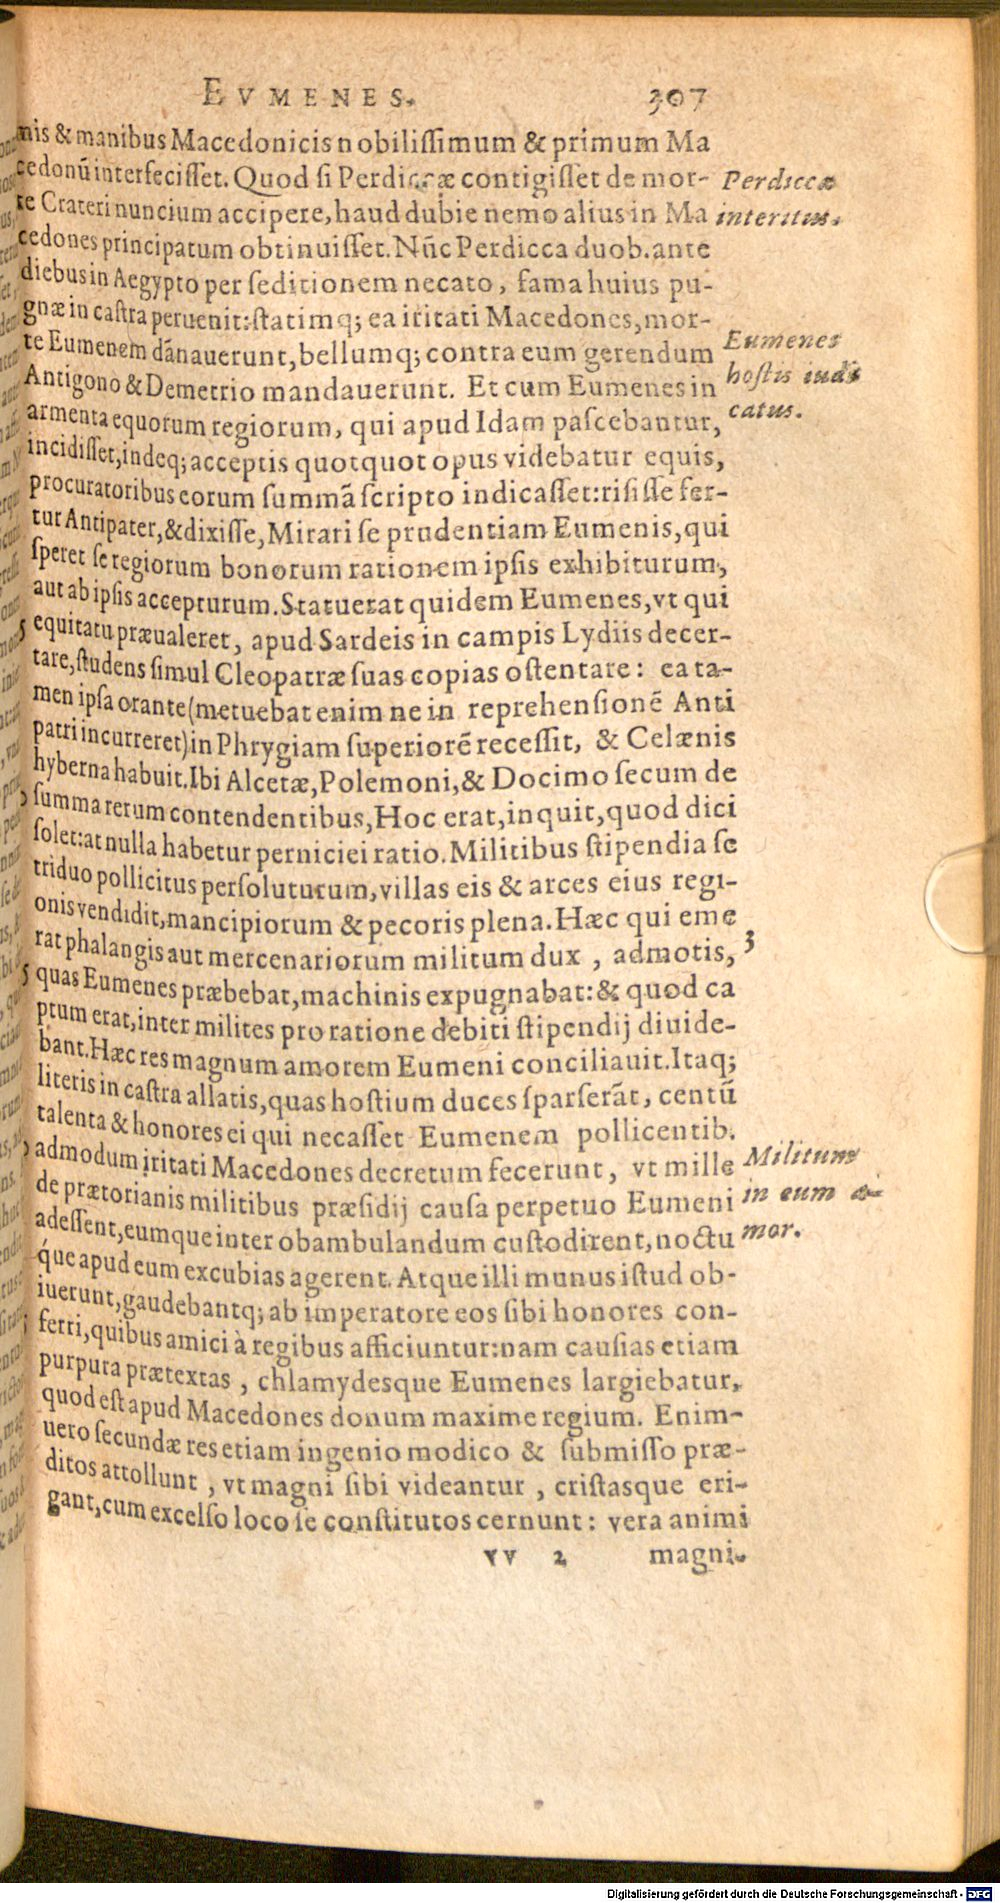 EVMENES. 307
mis & manibus Macedonicis nobilissimum & primum Ma
cedonũ interfecisset. Quod si Perdiccæ contigisset de mor-
te Crateri nuncium accipere, haud dubie nemo alius in Ma
cedones principatum obtinuisset. Nũc Perdicca duob. ante
diebus in Aegypto per seditionem necato, fama huius pu-
gnæ in castra peruenit: statimq; ea iritati Macedones, mor-
te Eumenem dãnauerunt, bellumq; contra eum gerendum
Antigono & Demetrio mandauerunt. Et cum Eumenes in
armenta equorum regiorum, qui apud Idam pascebantur,
incidisset, indeq; acceptis quotquot opus videbatur equis,
procuratoribus eorum summã scripto indicasset: risisse fer-
tur Antipater, & dixisse, Mirari se prudentiam Eumenis, qui
speret se regiorum bonorum rationem ipsis exhibiturum,
aut ab ipsis accepturum. Statuerat quidem Eumenes, vt qui
equitatu præualeret, apud Sardeis in campis Lydiis decer-
tare, studens simul Cleopatræ suas copias ostentare: ea ta-
men ipsa orante (metuebat enim ne in reprehensionẽ Anti
patri incurreret) in Phrygiam superiorẽ recessit, & Celænis
hyberna habuit. Ibi Alcetæ, Polemoni, & Docimo secum de
summa rerum contendentibus, Hoc erat, inquit, quod dici
solet: at nulla habetur perniciei ratio. Militibus stipendia se
triduo pollicitus persoluturum, villas eis & arces eius regi-
onis vendidit, mancipiorum & pecoris plena. Hæc qui eme
rat phalangis aut mercenariorum militum dux, admotis,
quas Eumenes præbebat, machinis expugnabat: & quod ca
ptum erat, inter milites pro ratione debiti stipendij diuide-
bant. Hæc res magnum amorem Eumeni conciliauit. Itaq;
literis in castra allatis, quas hostium duces sparserãt, centũ
talenta & honores ei qui necasset Eumenem pollicentib.
admodum iritati Macedones decretum fecerunt, vt mille
de prætorianis militibus præsidij causa perpetuo Eumeni
adessent, eumque inter obambulandum custodirent, noctu
que apud eum excubias agerent. Atque illi munus istud ob-
iuerunt, gaudebantq; ab imperatore eos sibi honores con-
ferri, quibus amici à regibus afficiuntur: nam causias etiam
purpura prætextas, chlamydesque Eumenes largiebatur,
quod est apud Macedones donum maxime regium. Enim-
uero secundæ res etiam ingenio modico & submisso præ-
ditos attollunt, vt magni sibi videantur, cristasque eri-
gant, cum excelso loco se constitutos cernunt: vera animi
VV 2 magni-
Perdiccæ
interitus.
Eumenes
hostis iudi
catus.
3
Militum
in eum a-
mor.
5
5
Digitalisierung gefördert durch die Deutsche Forschungsgemeinschaft - DFG